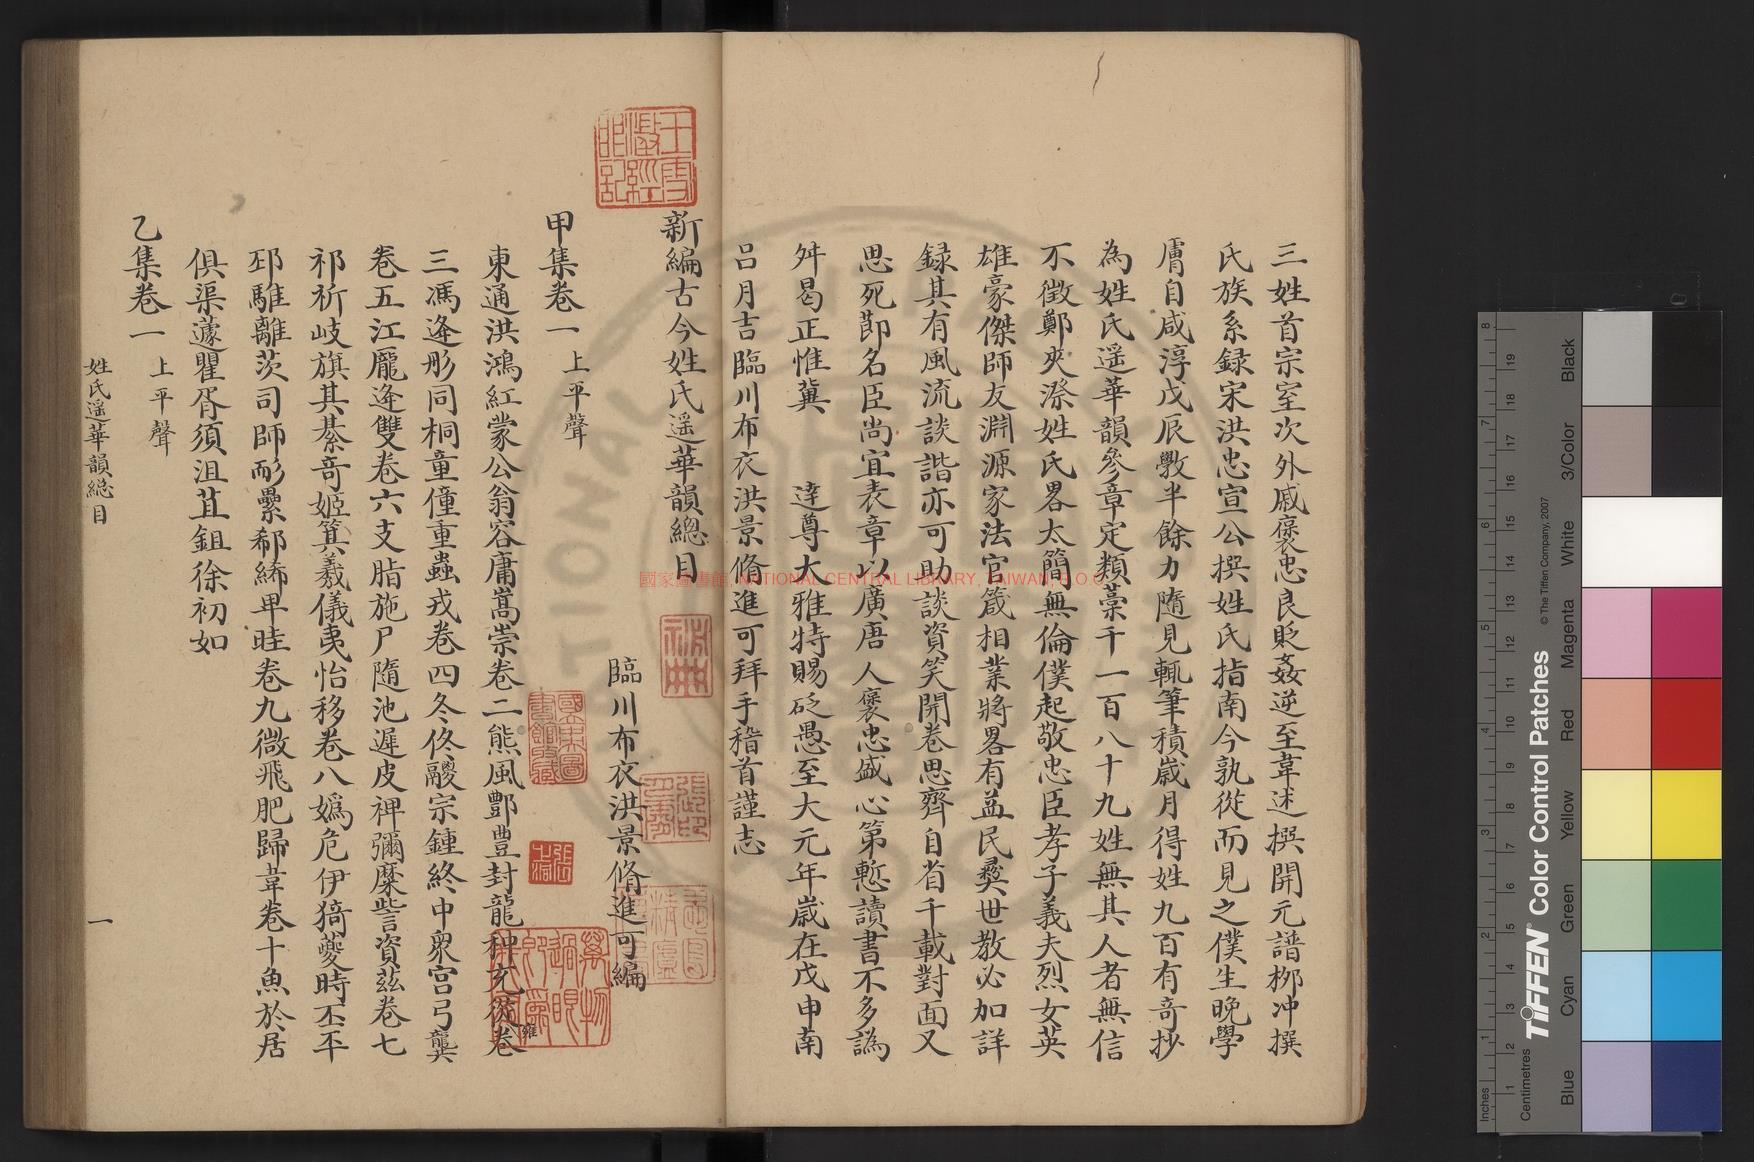 三姓首宗室次外戚褒忠良貶姦逆至韋述撰開元譜栁冲撰
氏族系録宋洪忠宣公撰姓氏指南今孰從而見之僕生晚學
膚自咸淳戊辰斆半餘力隨見輒筆積歲月得姓九百有奇抄
為姓氏遥華韻參章定類藁千一百八十九姓無其人者無信
不徴鄭夾漈姓氏畧太簡無倫僕起敬忠臣孝子義夫烈女英
雄豪傑師友淵源家法官箴相業將畧有益民彛世教必加詳
録其有風流談諧亦可助談資笑開卷思齊自省千載對面又
思死節名臣尚宜表章以廣唐人褒忠盛心第慙讀書不多譌
舛曷正惟冀　達尊大雅特賜砭愚至大元年歲在戊申南
呂月吉臨川布衣洪景脩進可拜手稽首謹志
新編古今姓氏遥華韻總目
臨川布衣洪景脩進可編
甲集卷一 上平聲
東通洪鴻紅蒙公翁容庸嵩崇卷二熊風酆豊封龍种充從雍卷
三馮逄肜同桐童僮重蟲戎卷四冬佟融宗鍾終中衆宫弓龔
卷五江龐逄雙卷六支脂施尸隨池遲皮裨彌糜訾資兹卷七
祁祈岐旗其綦奇姬箕羲儀夷怡移卷八嬀危伊猗夔時丕平
邳騅離茨司師耏纍郗絺卑眭卷九微飛肥歸韋卷十魚於居
俱渠蘧瞿胥須沮苴鉏徐初如
乙集卷一 上平聲
姓氏遥華韻總目
一
國家圖書館, NATIONAL CENTRAL LIBRARY, TAIWAN, R.O.C.
Inches
Centimetres
TIFFEN® Color Control Patches
© The Tiffen Company, 2007
Blue
Cyan
Green
Yellow
Red
Magenta
White
3/Color
Black